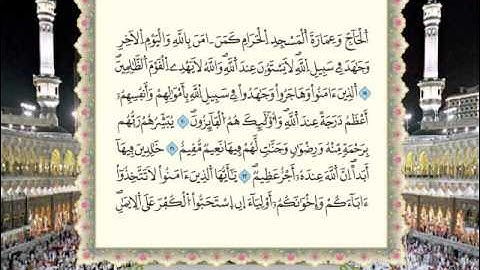 اَ۬لْحَآجِّ وَعِمَارَةَ اَ۬لْمَسْجِدِ اِ۬لْحَرَامِ كَمَنَ اٰمَنَ بِاللَّهِ وَالْيَوْمِ اِ۬لَاخِرِ
وَجَٰهَدَ فِے سَبِيلِ اِ۬للَّهِ لَا يَسْتَوُۥنَ عِندَ اَ۬للَّهِ وَاللَّهُ لَا يَهْدِے اِ۬لْقَوْمَ اَ۬لظَّٰلِمِينَ
اَ۬لذِينَ ءَامَنُواْ وَهَاجَرُواْ وَجَٰهَدُواْ فِے سَبِيلِ اِ۬للَّهِ بِأَمْوَٰلِهِمْ وَأَنفُسِهِمُۥٓ
أَعْظَمُ دَرَجَةً عِندَ اَ۬للَّهِ وَأُوْلَٰٓئِكَ هُمُ اُ۬لْفَآئِزُونَ يُبَشِّرُهُمْ رَبُّهُم
بِرَحْمَةٍ مِّنْهُ وَرِضْوَٰنٍ وَجَنَّٰتٍ لَّهُمْ فِيهَا نَعِيمٌ مُّقِيمٌ خَٰلِدِينَ فِيهَآ
أَبَداًۖ اِنَّ اَ۬للَّهَ عِندَهُۥٓ أَجْرٌ عَظِيمٌ يَٰٓأَيُّهَا اَ۬لذِينَ ءَامَنُواْ لَا تَتَّخِذُوٓاْ
ءَابَآءَكُمْ وَإِخْوَٰنَكُمُۥٓ أَوْلِيَآءَ اِنِ اِ۪سْتَحَبُّواْ اُ۬لْكُفْرَ عَلَى اَ۬لِايمَٰنِ